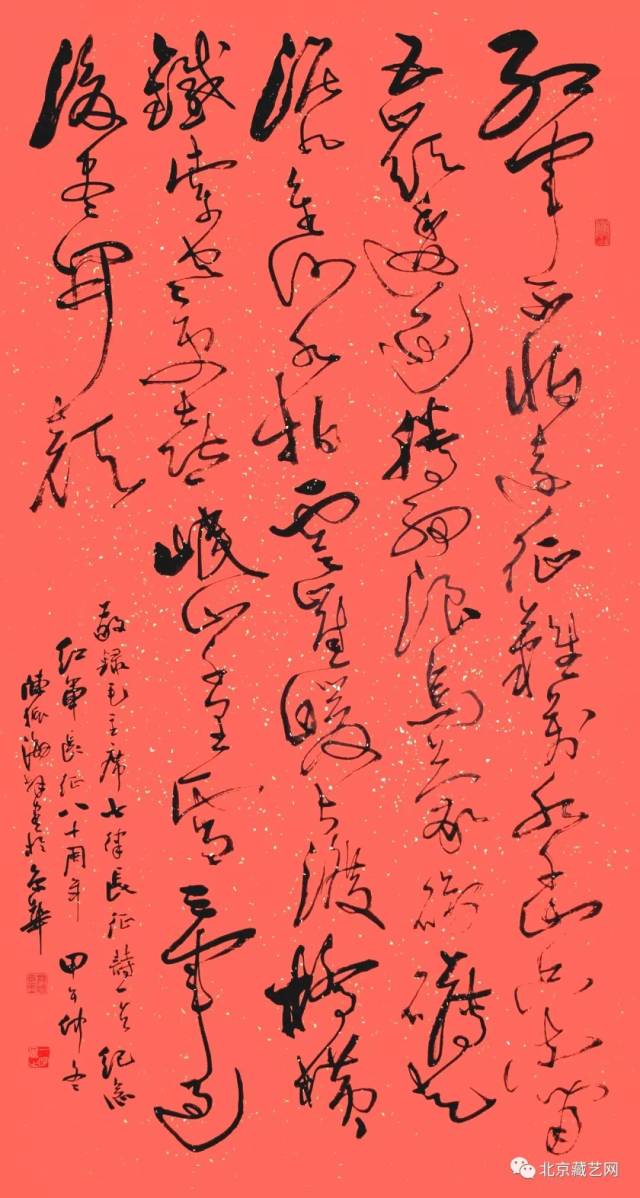 红军不怕远征難万水千山只等闲
五嶺逶迤腾细浪乌蒙磅礴走
泥丸金沙水拍雲崖暖大渡桥横
鐵索寒更喜岷山千里雪三军过
後尽开颜
敬録毛主席七律長征詩一首纪念
红军長征八十周年 甲午仲冬
海 書於京華
北京藏艺网